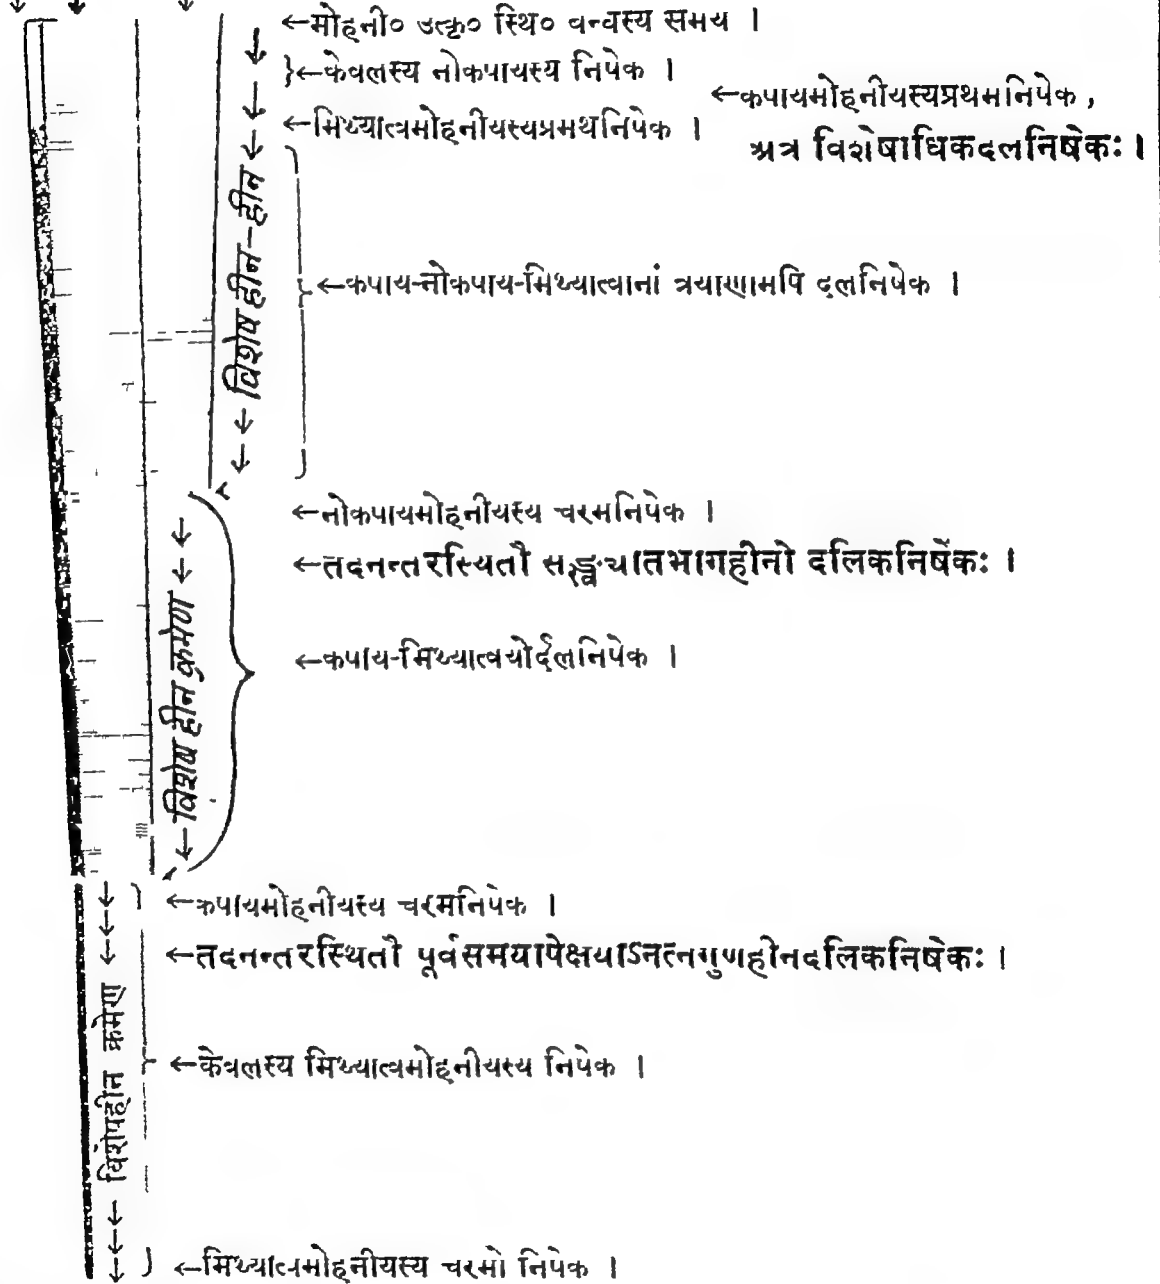 ←मोहनी० उत्कृ० स्थि० वन्वस्य समय ।
←केवलस्य नोकपायस्य निपेक ।
←कपायमोहनीयस्यप्रथमनिपेक ,
←मिथ्यात्वमोहनीयस्यप्रमथनिपेक ।
अत्र विशेषाधिकदलनिषेकः ।
विशेष हीन-हीन
←कपाय-नोकपाय-मिथ्यात्वानां त्रयाणामपि दलनिपेक ।
←नोकपायमोहनीयस्य चरमनिपेक ।
←तदनन्तरस्थितौ सङ्ख्यातभागहीनो दलिकनिर्षेकः ।
विशेष हीन क्रमेण
←कपाय-मिथ्यात्वयोर्दलनिपेक ।
←कपायमोहनीयस्य चरमनिपेक ।
←तदनन्तरस्थितौ पूर्वसमयापेक्षयाऽनत्नगुणहीनदलिकनिषेकः ।
विशेपहीन क्रमेण
←केवलस्य मिथ्यात्वमोहनीयस्य निपेक ।
←मिथ्यात्वमोहनीयस्य चरमो निपेक ।